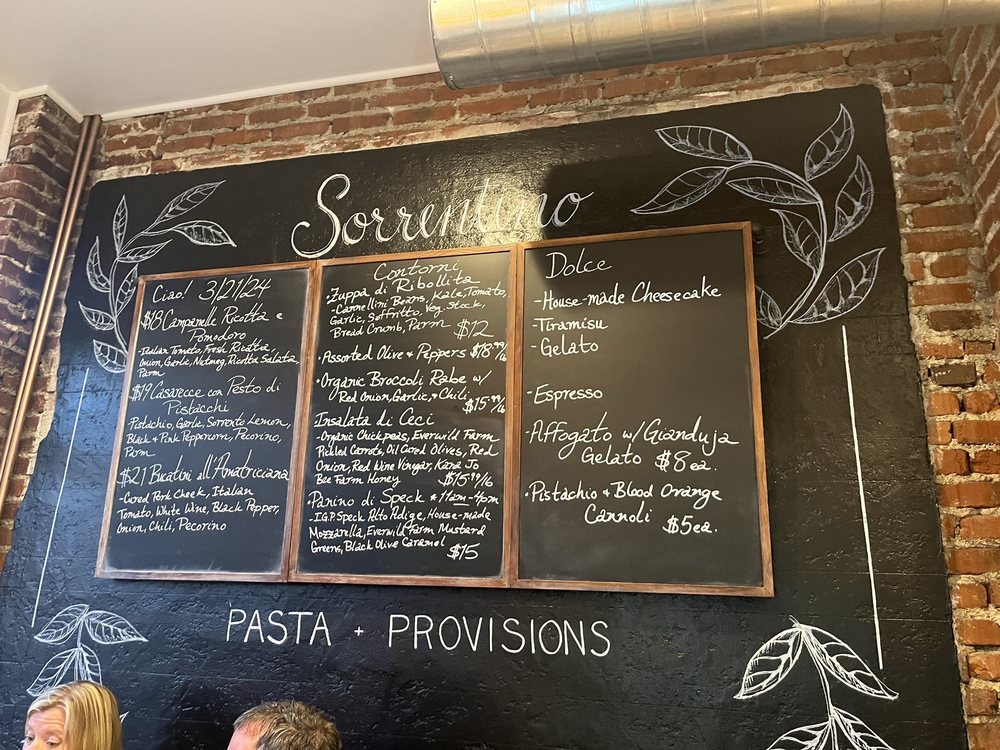 Sorrentino
Ciao! 3/21/24
$18 Campanelle Ricotta e
Pomodoro
-Italian Tomato, Fresh Ricotta
Onion, Garlic, Nutmeg, Ricotta Salata,
Parm
$19 Casarecce con Pesto di
Pistacchi
-Pistachio, Garlic, Sorrento Lemon,
Black + Pink Peppercorn, Pecorino,
Parm
$21 Bucatini all'Amatricciana
-Cured Pork Cheek, Italian
Tomato, White Wine, Black Pepper,
Onion, Chili, Pecorino
Contorni
•Zuppa di Ribollita
-Cannellini Beans, Kale, Tomato,
Garlic, Soffritto, Veg. Stock,
Bread Crumb, Parm $12
•Assorted Olive + Peppers $18.99/16
•Organic Broccoli Rabe w/
Red Onion, Garlic, + Chili
$15.99/16
Insalata di Ceci
-Organic Chickpeas, Everwild Farm
Pickled Carrots, Oil Cured Olives, Red
Onion, Red Wine Vinegar, Kara Jo
Bee Farm Honey $15.99/16
•Panino di Speck * 11am-4pm
-I.G.P. Speck Alto Adige, House-made
Mozzarella, Everwild Farm Mustard
Greens, Black Olive Caramel
$15
Dolce
-House-made Cheesecake
-Tiramisu
-Gelato
-Espresso
-Affogato w/ Gianduja
Gelato $8ea.
•Pistachio + Blood Orange
Cannoli $5ea.
PASTA + PROVISIONS